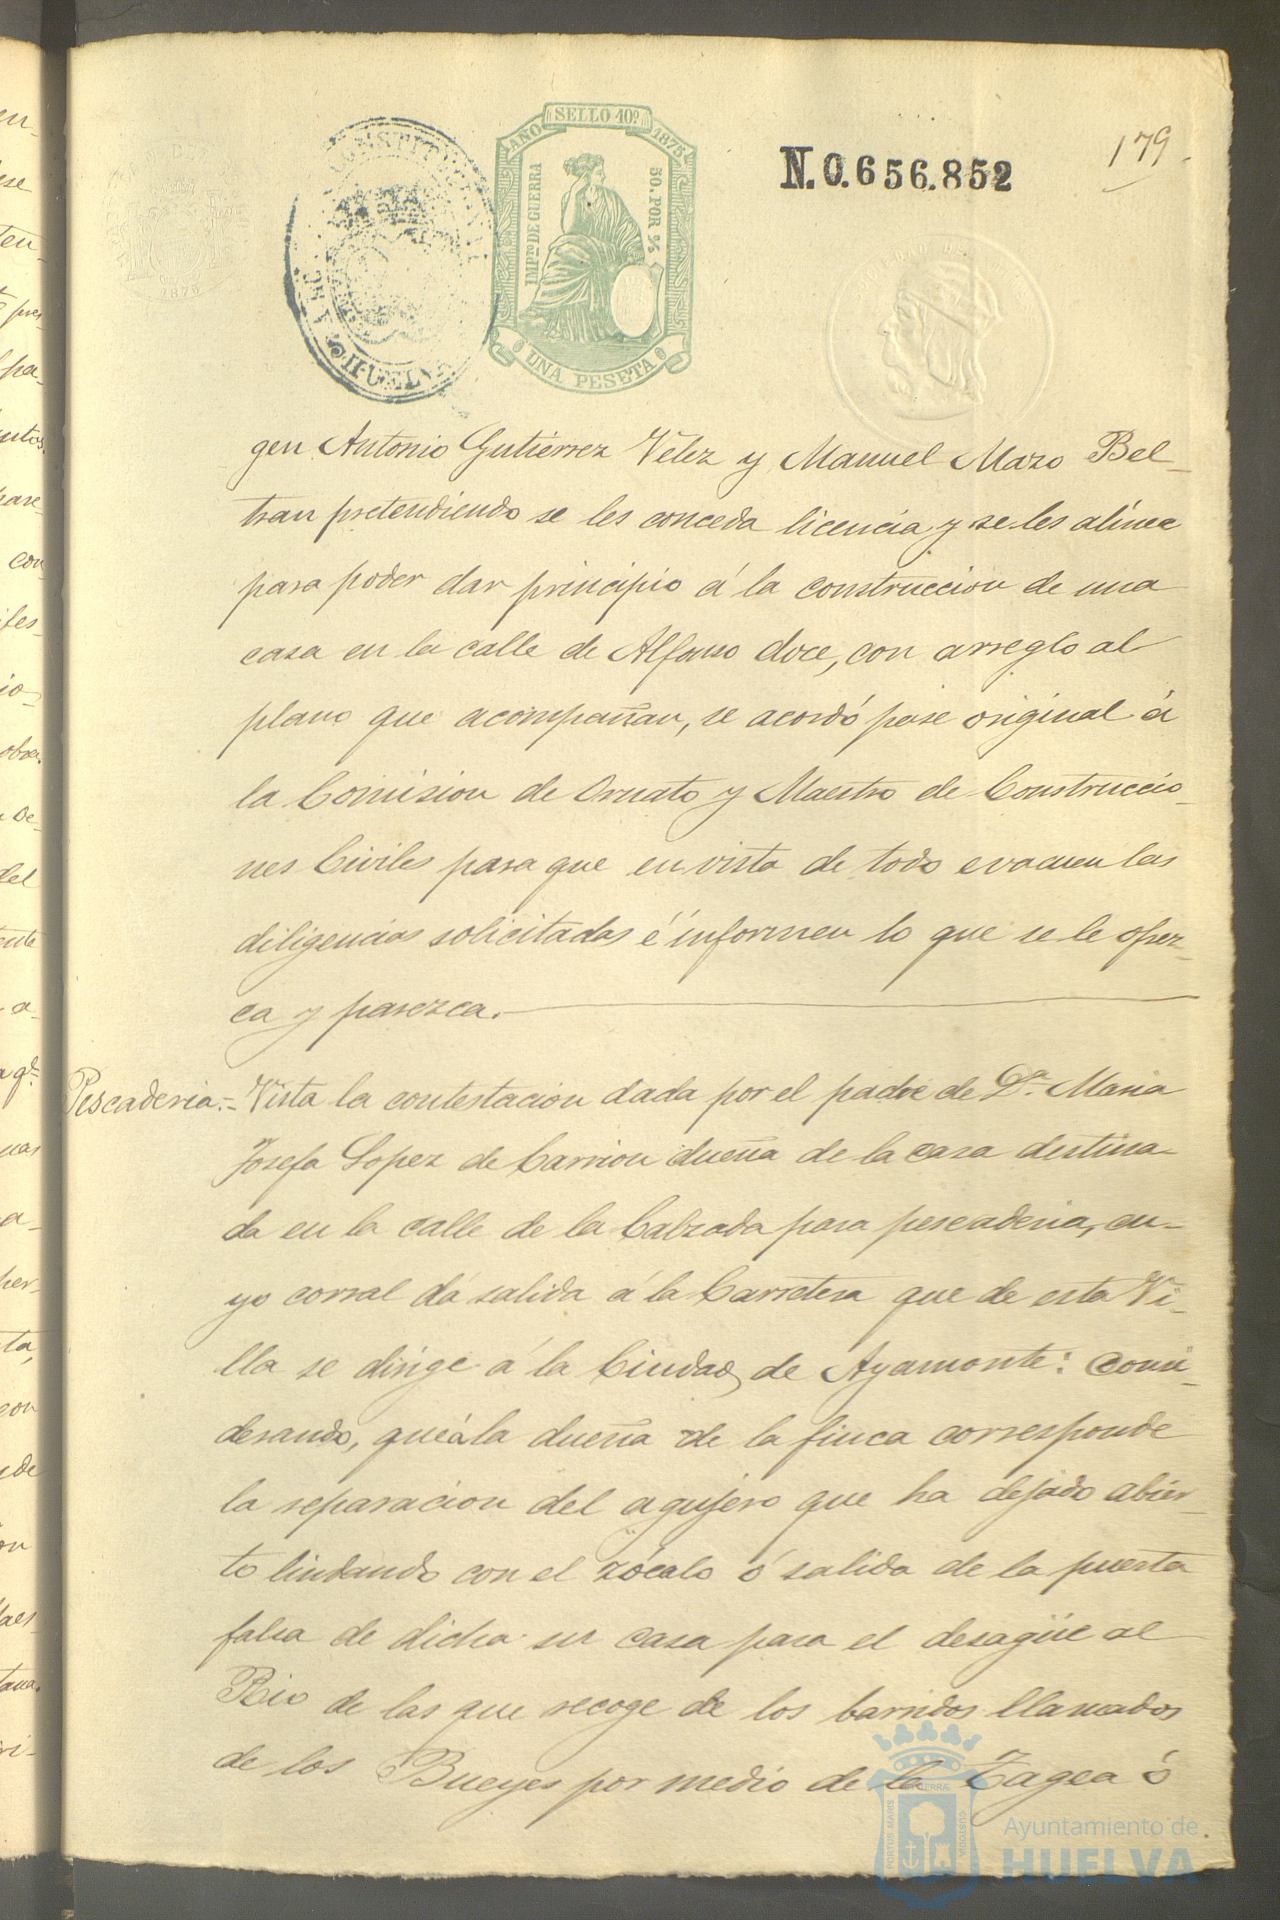 179
N.0.656.852
SELLO 10º
AÑO 1875
IMPto DE GUERRA
50. POR %
UNA PESETA
CONSTITUCIONAL
HUELVA
1875
gen Antonio Gutierrez Velez y Manuel Mazo Bel-
tran pretendiendo se les conceda licencia y se les alinee
para poder dar principio á la construccion de una
casa en la calle de Alfonso doce, con arreglo al
plano que acompañan, se acordó pase original á
la Comision de Ornato y Maestro de Construccio-
nes Civiles para que en vista de todo evacuen las
diligencias solicitadas é informen lo que se le ofrez-
ca y parezca.
Pescaderia.= Vista la contestacion dada por el padre de Dª Maria
Josefa Lopez de Carrion dueña de la casa destina-
da en la calle de la Calzada para pescaderia, cu-
yo corral dá salida á la Carretera que de esta Vi-
lla se dirige á la Ciudad de Ayamonte: Consi-
derando, que á la dueña de la finca corresponde
la reparacion del agujero que ha dejado abier-
to lindando con el zócalo ó salida de la puerta
falsa de dicha su casa para el desagüe al
Rio de las que recoge de los barridos llamados
de los Bueyes por medio de la Zagea ó
Ayuntamiento de
HUELVA
PORTUS MARIS
CUSTODIA